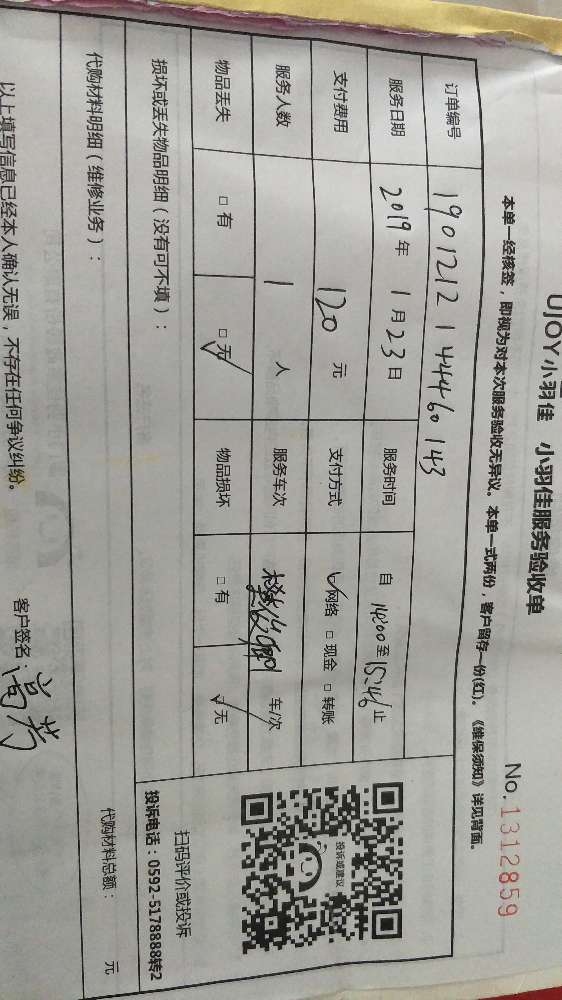 UJOY小羽佳 小羽佳服务验收单
No.1312859
本单一经核签，即视为对本次服务验收无异议。本单一式两份，客户留存一份(红)。《维保须知》详见背面。
订单编号 190121214446 0143
服务日期 2019年1月23日 服务时间 自14:00至15:46止
支付费用 120元 支付方式 ☑网络 □现金 □转账
服务人数 1人 服务车次 车/次
物品丢失 □有 ☑无 物品损坏 □有 ☑无
损坏或丢失物品明细（没有可不填）：
投诉或建议
扫码评价或投诉
投诉电话：0592-5178888转2
代购材料明细（维修业务）：
代购材料总额： 元
以上填写信息已经本人确认无误，不存在任何争议纠纷。
客户签名：